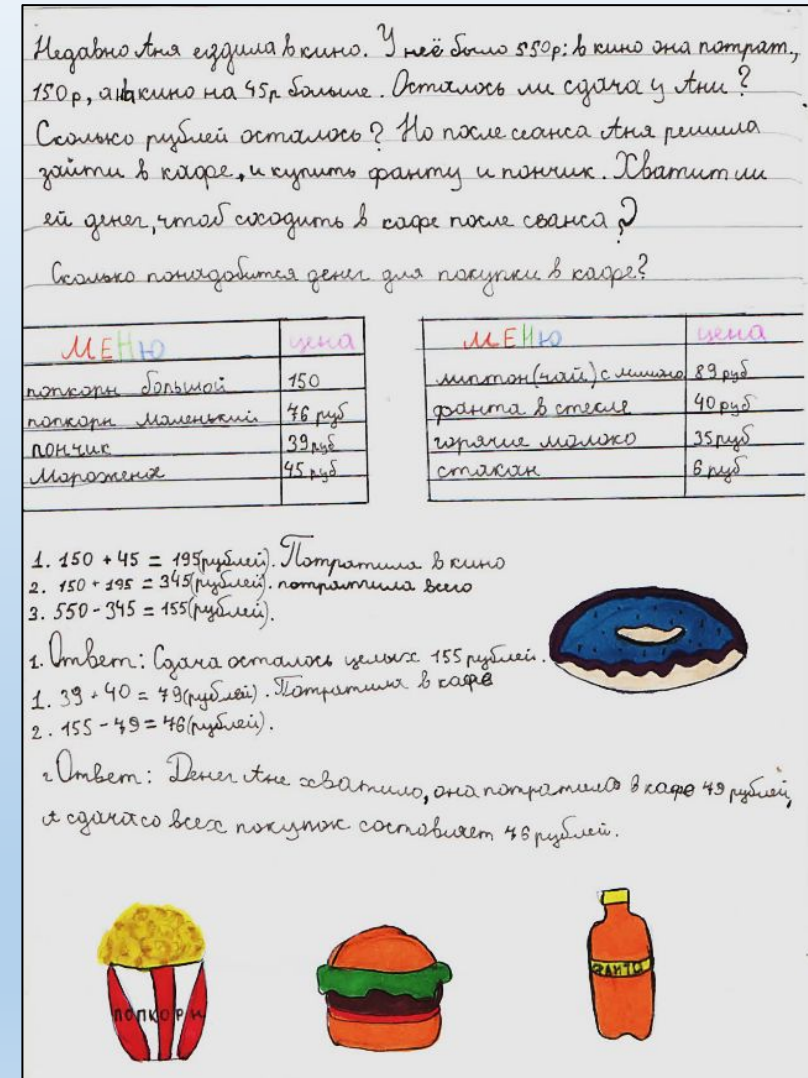 Недавно Аня ездила в кино. У неё было 550р: в кино она потрат.,
150р, а на кино на 45р больше. Осталось ли сдача у Ани?
Сколько рублей осталось? Но после сеанса Аня решила
зайти в кафе, и купить фанту и пончик. Хватит ли
ей денег, чтоб сходить в кафе после сеанса?
Сколько понадобится денег для покупки в кафе?
МЕНЮ цена
попкорн большой 150
попкорн маленький 76 руб
пончик 39 руб
Мороженое 45 руб
МЕНЮ цена
липтон(чай) с 89 руб
фанта в стекле 40 руб
горячие молоко 35 руб
стакан 6 руб
1. 150 + 45 = 195(рублей). Потратила в кино
2. 150 + 195 = 345(рублей). потратила всего
3. 550 - 345 = 155(рублей).
1. Ответ: Сдача осталось целых 155 рублей.
1. 39 + 40 = 79(рублей). Потратила в кафе
2. 155 - 79 = 76(рублей).
2 Ответ: Денег Ане хватило, она потратила в кафе 79 рублей,
а сдача со всех покупок составляет 76 рублей.
ПОПКОРН
ФАНТА